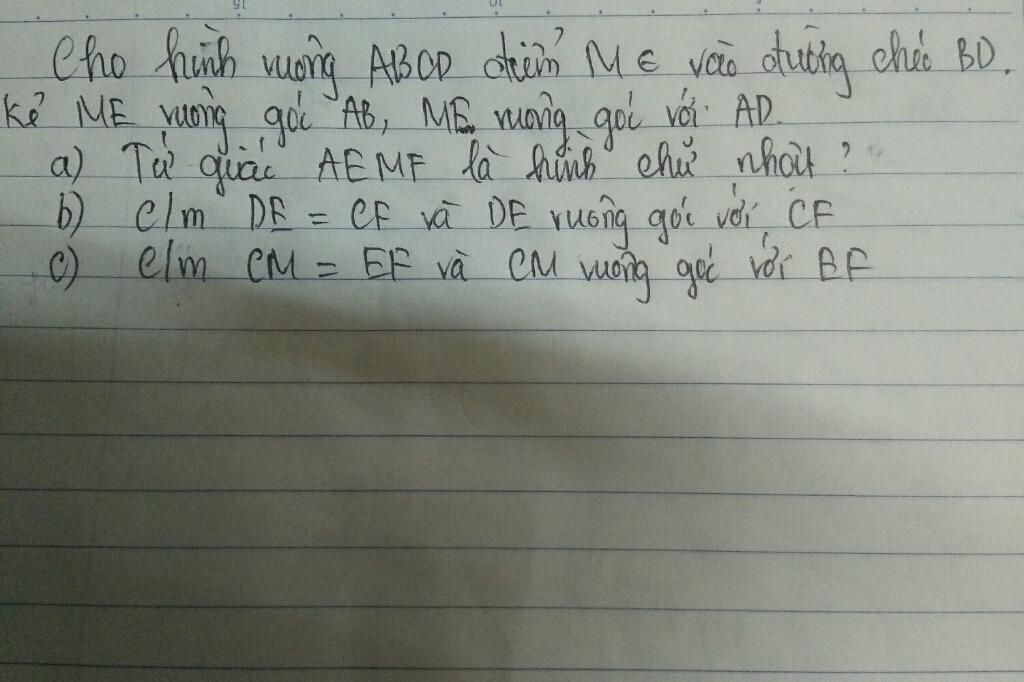 Cho hình vuông ABCD điểm M ∈ vào đường chéo BD.
Kẻ ME vuông gói AB, ME vuông gói với AD.
a) Tứ giác AEMF là hình chữ nhật ?
b) C/m DE = CF và DE vuông gói với CF
c) C/m CM = EF và CM vuông góc với EF